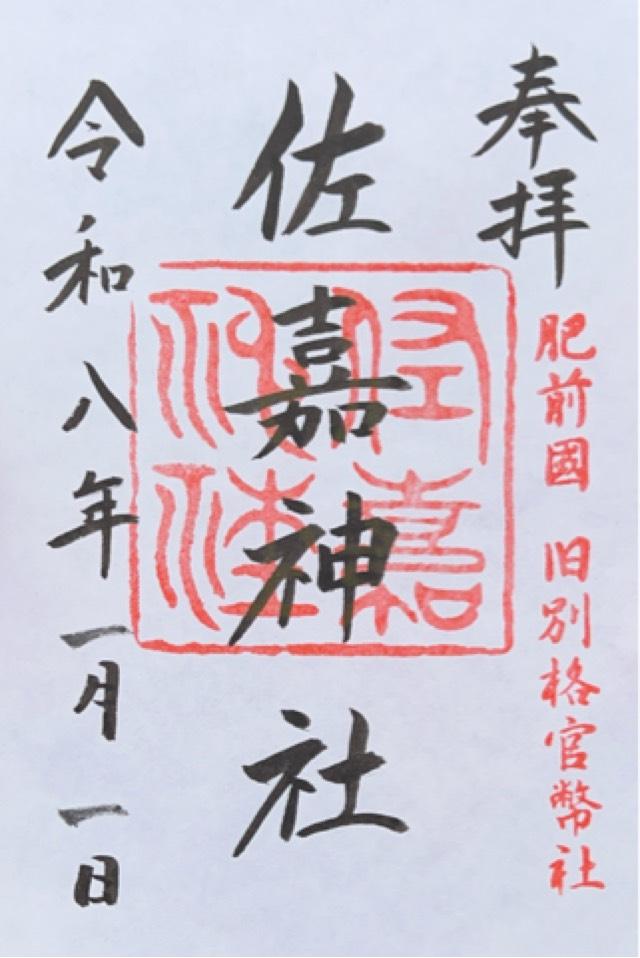 奉拝
肥前國 旧別格官幣社
佐嘉神社
佐嘉神社
令和八年一月一日